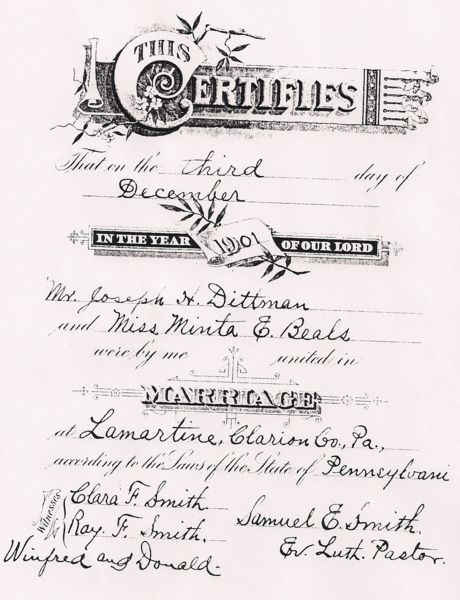 THIS
CERTIFIES
That on the third day of
December
IN THE YEAR 1901 OF OUR LORD
Mr. Joseph H. Dittman
and Miss Minta E. Beals
were by me united in
MARRIAGE
at Lamartine, Clarion Co., Pa.,
according to the Laws of the State of Pennsylvani
Witnesses
Clara F. Smith.
Ray. F. Smith.
Winfred and Donald.
Samuel E. Smith.
Ev. Luth. Pastor.